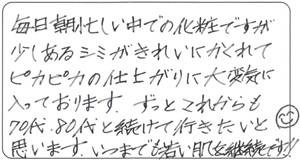 毎日朝忙しい中での化粧ですが
少しあるシミがきれいにかくれて
ピカピカの仕上がりに大変気に
入っております。ずっとこれからも
70代、80代と続けて行きたいと
思います。いつまでも若い肌を継続です!!